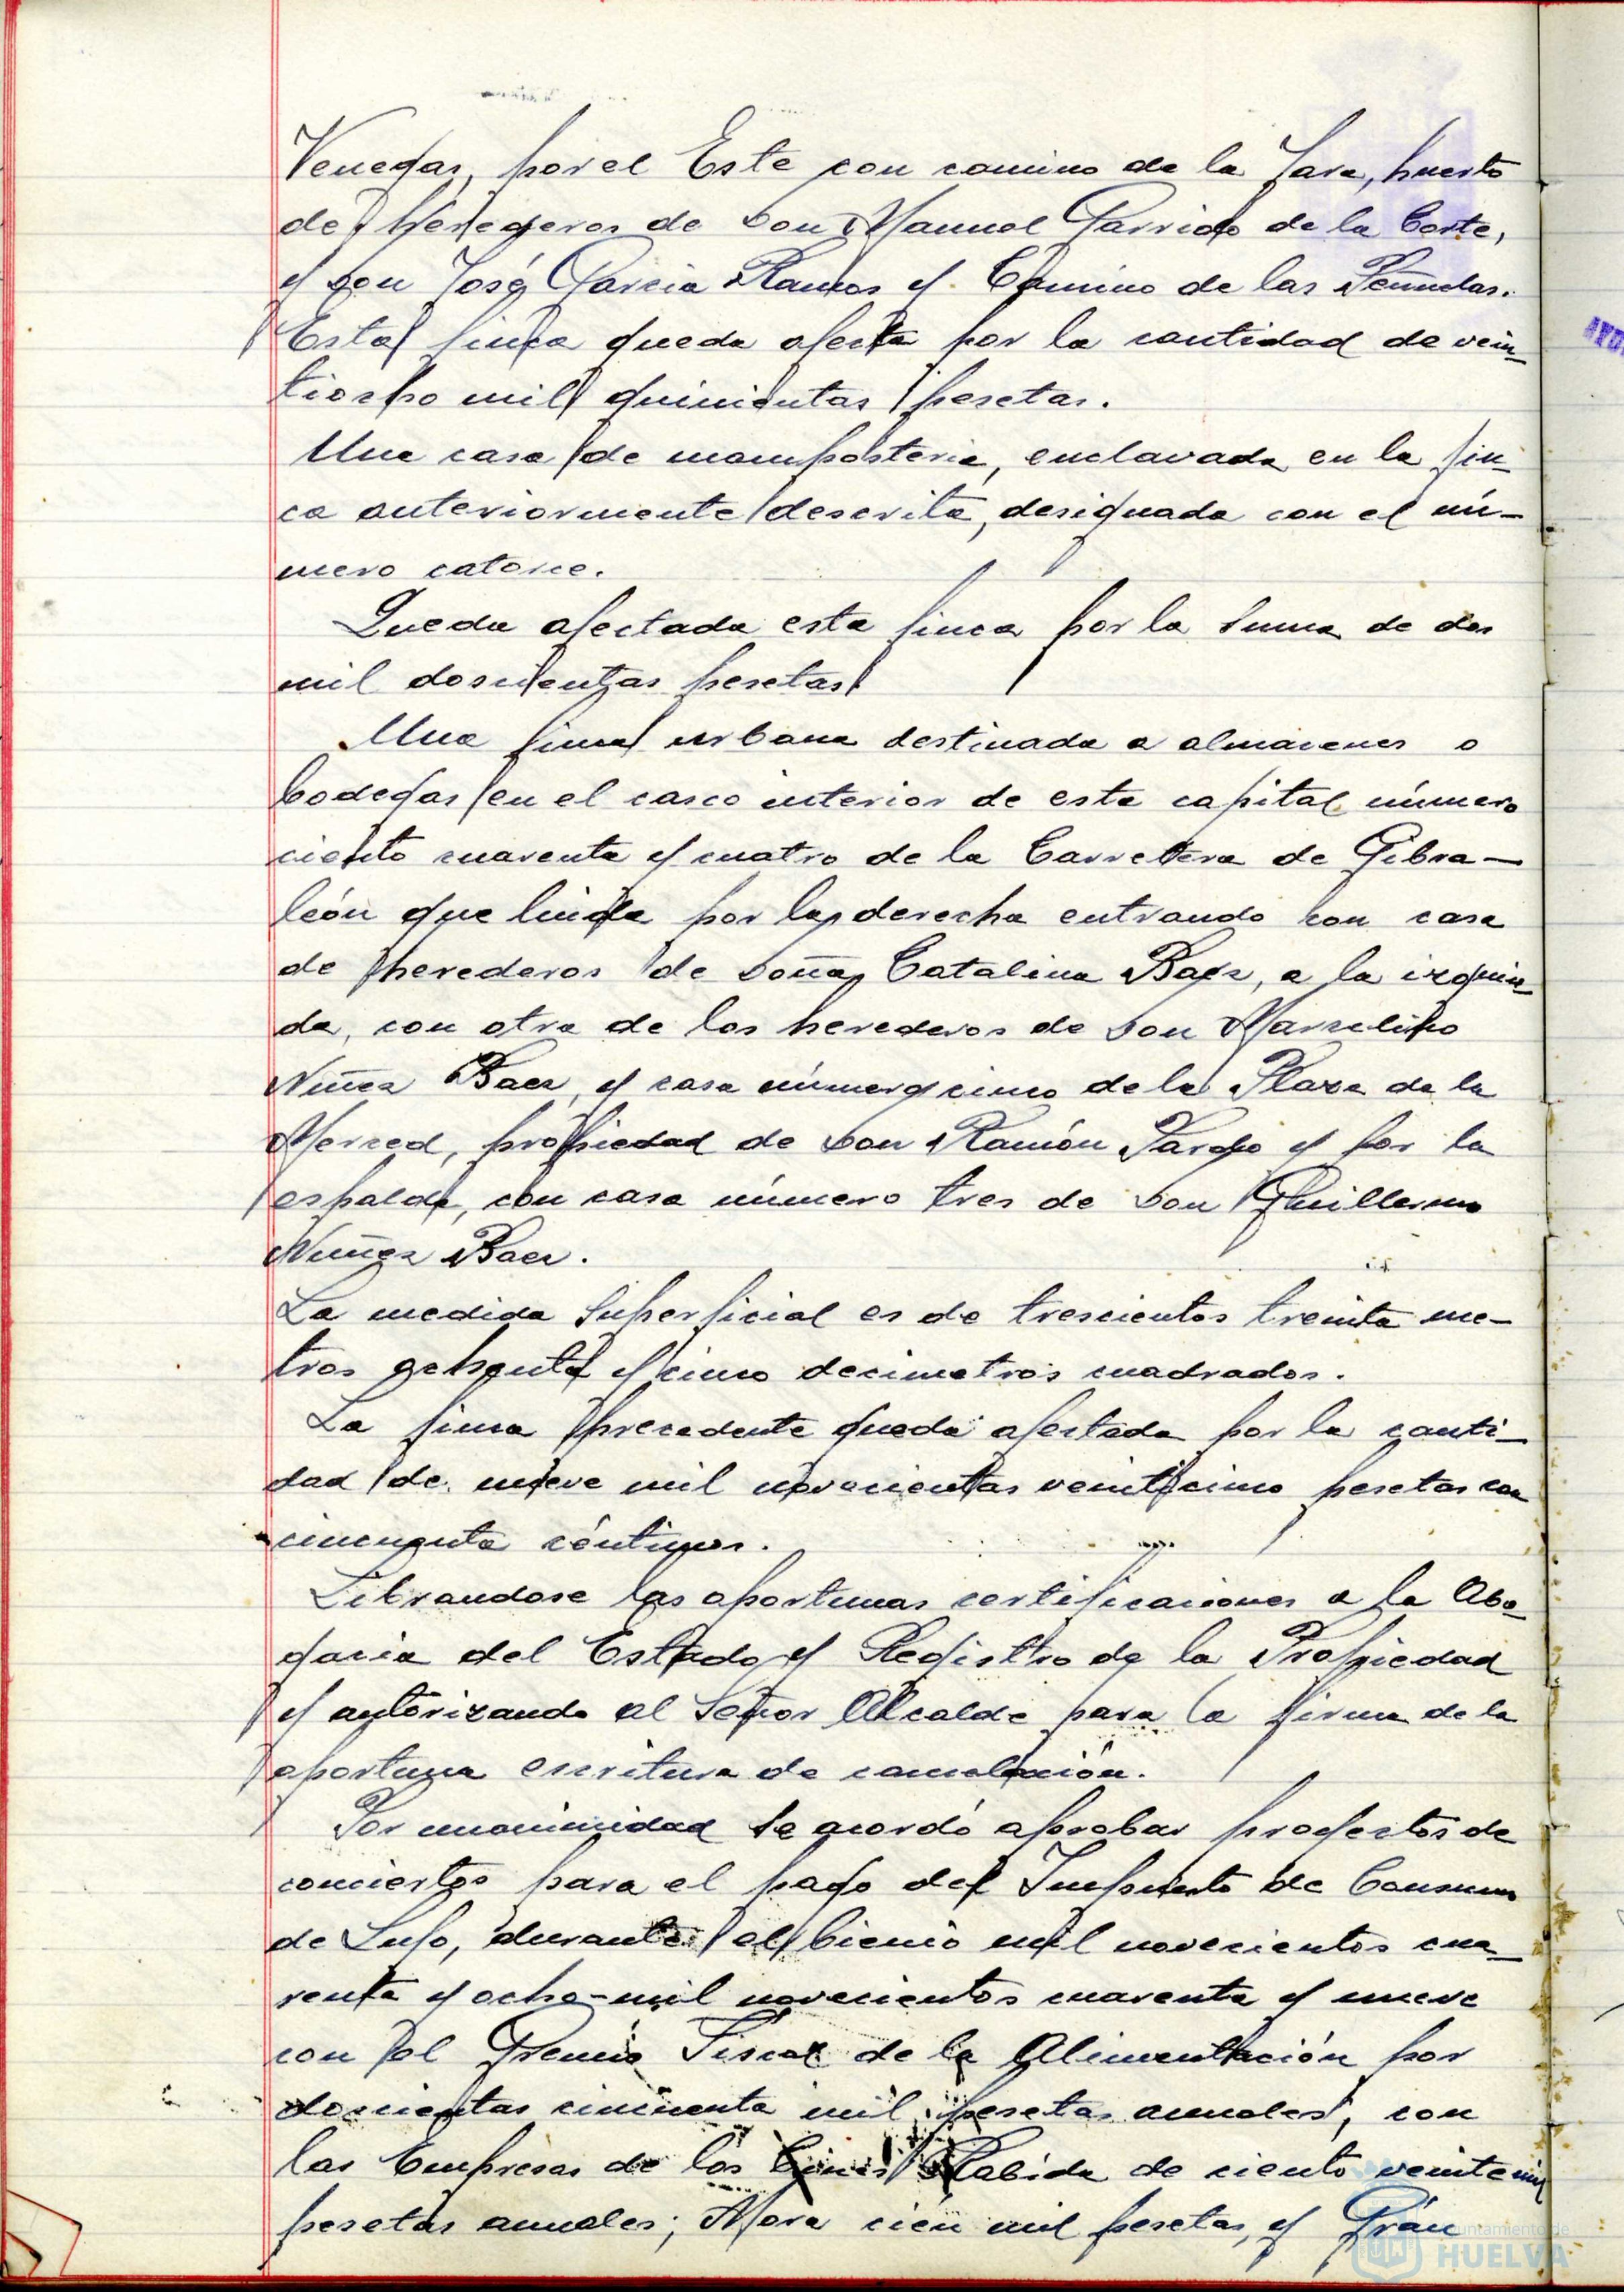 Venegas, por el Este con camino de la Jara, huerto
de Herederos de Don Manuel Garrido de la Corte,
y don José García Ramos y Camino de las Peñuelas.
Esta finca queda afecta por la cantidad de vein-
tiocho mil quinientas pesetas.
Una casa de mamposteria, enclavada en la fin-
ca anteriormente descrita, designada con el nú-
mero catorce.
Queda afectada esta finca por la suma de dos
mil doscientas pesetas.
Una finca urbana destinada a almacenes o
bodegas en el casco interior de esta capital número
ciento cuarenta y cuatro de la Carretera de Gibra-
león que linda por la derecha entrando con casa
de herederos de Doña Catalina Baez, a la izquier-
da, con otra de los herederos de Don Marcelino
Nuñez Baez, y casa número cinco de la Plaza de la
Merced, propiedad de Don Ramón Pardo y por la
espalda, con casa número tres de Don Guillermo
Nuñez Baez.
La medida superficial es de trescientos treinta me-
tros ochenta y cinco decimetros cuadrados.
La finca precedente queda afectada por la canti-
dad de nueve mil novecientas veinticinco pesetas con
cincuenta céntimos.
Librandose las oportunas certificaciones a la Abo-
gacia del Estado y Registro de la Propiedad
y autorizando al Señor Alcalde para la firma de la
oportuna escritura de cancelación.
Por unanimidad se acordó aprobar proyectos de
conciertos para el pago del Impuesto de Consumo
de Lujo, durante el bienio mil novecientos cua-
renta y ocho-mil novecientos cuarenta y nueve
con el Gremio Fiscal de la Alimentación por
doscientas cincuenta mil pesetas anuales, con
las Empresas de los Cines Rabida de ciento veinte mil
pesetas anuales; Mora cien mil pesetas, y Grán
Ayuntamiento de
HUELVA